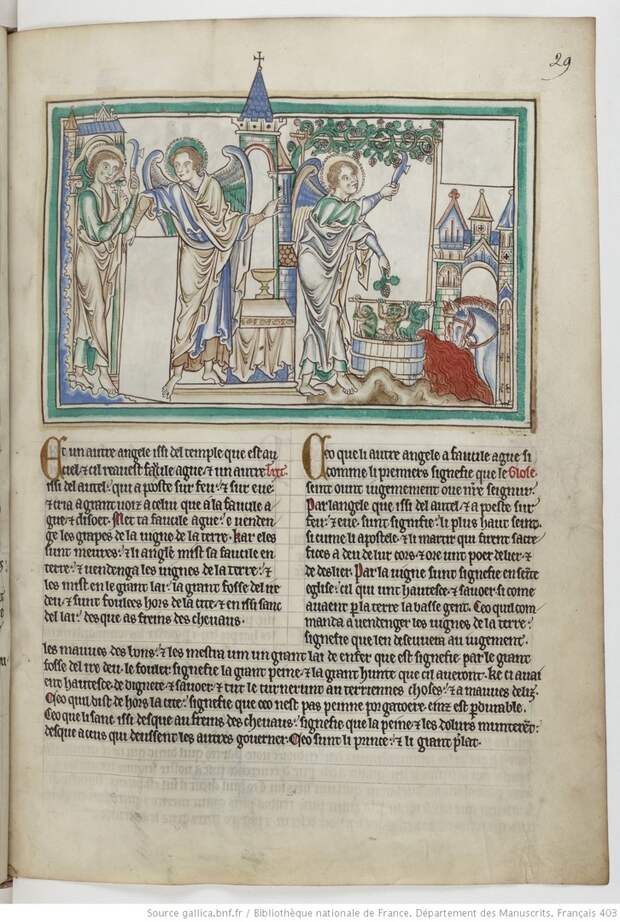 29
Et un autre angele issi del temple que est au
ciel & cil reauest faucile ague & un autre Text.
issi del autel. qui a poste sur feu. & sur eue.
& cria a grant uoiz a celui que a la faucile a
gue & disoit. Met ta faucile ague. e uendeng
ge les grapes de la uigne de la terre. kar eles
sunt meures. & li angle mist sa faucile en
terre. & uendenga les uignes de la terre. &
les mist en le grant lai. la grant fosse del ire
deu. & sunt foulees hors de la cite. & en issi sanc
del lai. des que as freins des cheuaus.
Ceo que li autre angele a faucile ague si
comme li premiers signefie que le Glose.
seint ount iugement oue nre seignur.
Par langele que issi del autel. & a poste sur
feu. & eue. sunt signefie li plus haut seint.
si cume li apostele. & li martir qui firent sacre
fices a deu de lur cors. & ore unt poer de lier. &
de deslier. Par la uigne sunt signefie en seinte
eglise. cil qui unt hautesce. & sauoer si come
auaent par la terre la basse gent. Ceo quil com
manda a uendenger les uignes de la terre.
signefie que len deseuera au iugement.
les mauues des bons. & les mestra um un grant lai de enfer que est signefie par le grant
fosse del ire deu. le fouler signefie la grant peine & la grant hunte que cil aueront. Ke ci auai
ent hautesce de dignete & sauoer & tur le turnerunt au terriennes choses. & a mauues deliz.
Ceo quil dist de hors la cite. signefie que ceo nest pas peinne purgatoere. einz est pardurable.
Ceo que li sanc issi desque au freins des cheuaus. signefie que la peine & les dolurs munterent.
desque a ceus qui deussent les autres gouerner. Ceo sunt li prince. & li grant prelat.
Source gallica.bnf.fr / Bibliothèque nationale de France. Département des Manuscrits. Français 403